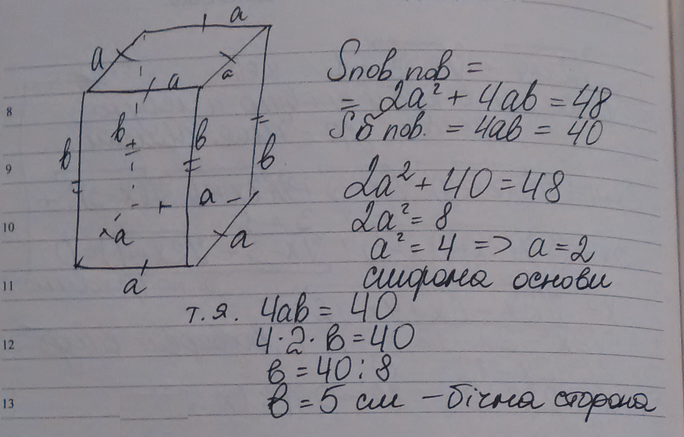 a
a
a
a
8
в
в
в
в
9
a
10
a
a
11
a
Sпов пов =
= 2a² + 4ab = 48
Sб пов. = 4ab = 40
2a² + 40 = 48
2a² = 8
a² = 4 => a = 2
сторона основи
т.я. 4ab = 40
12
4·2·в = 40
в = 40 : 8
13
в = 5 см – бічна сторона